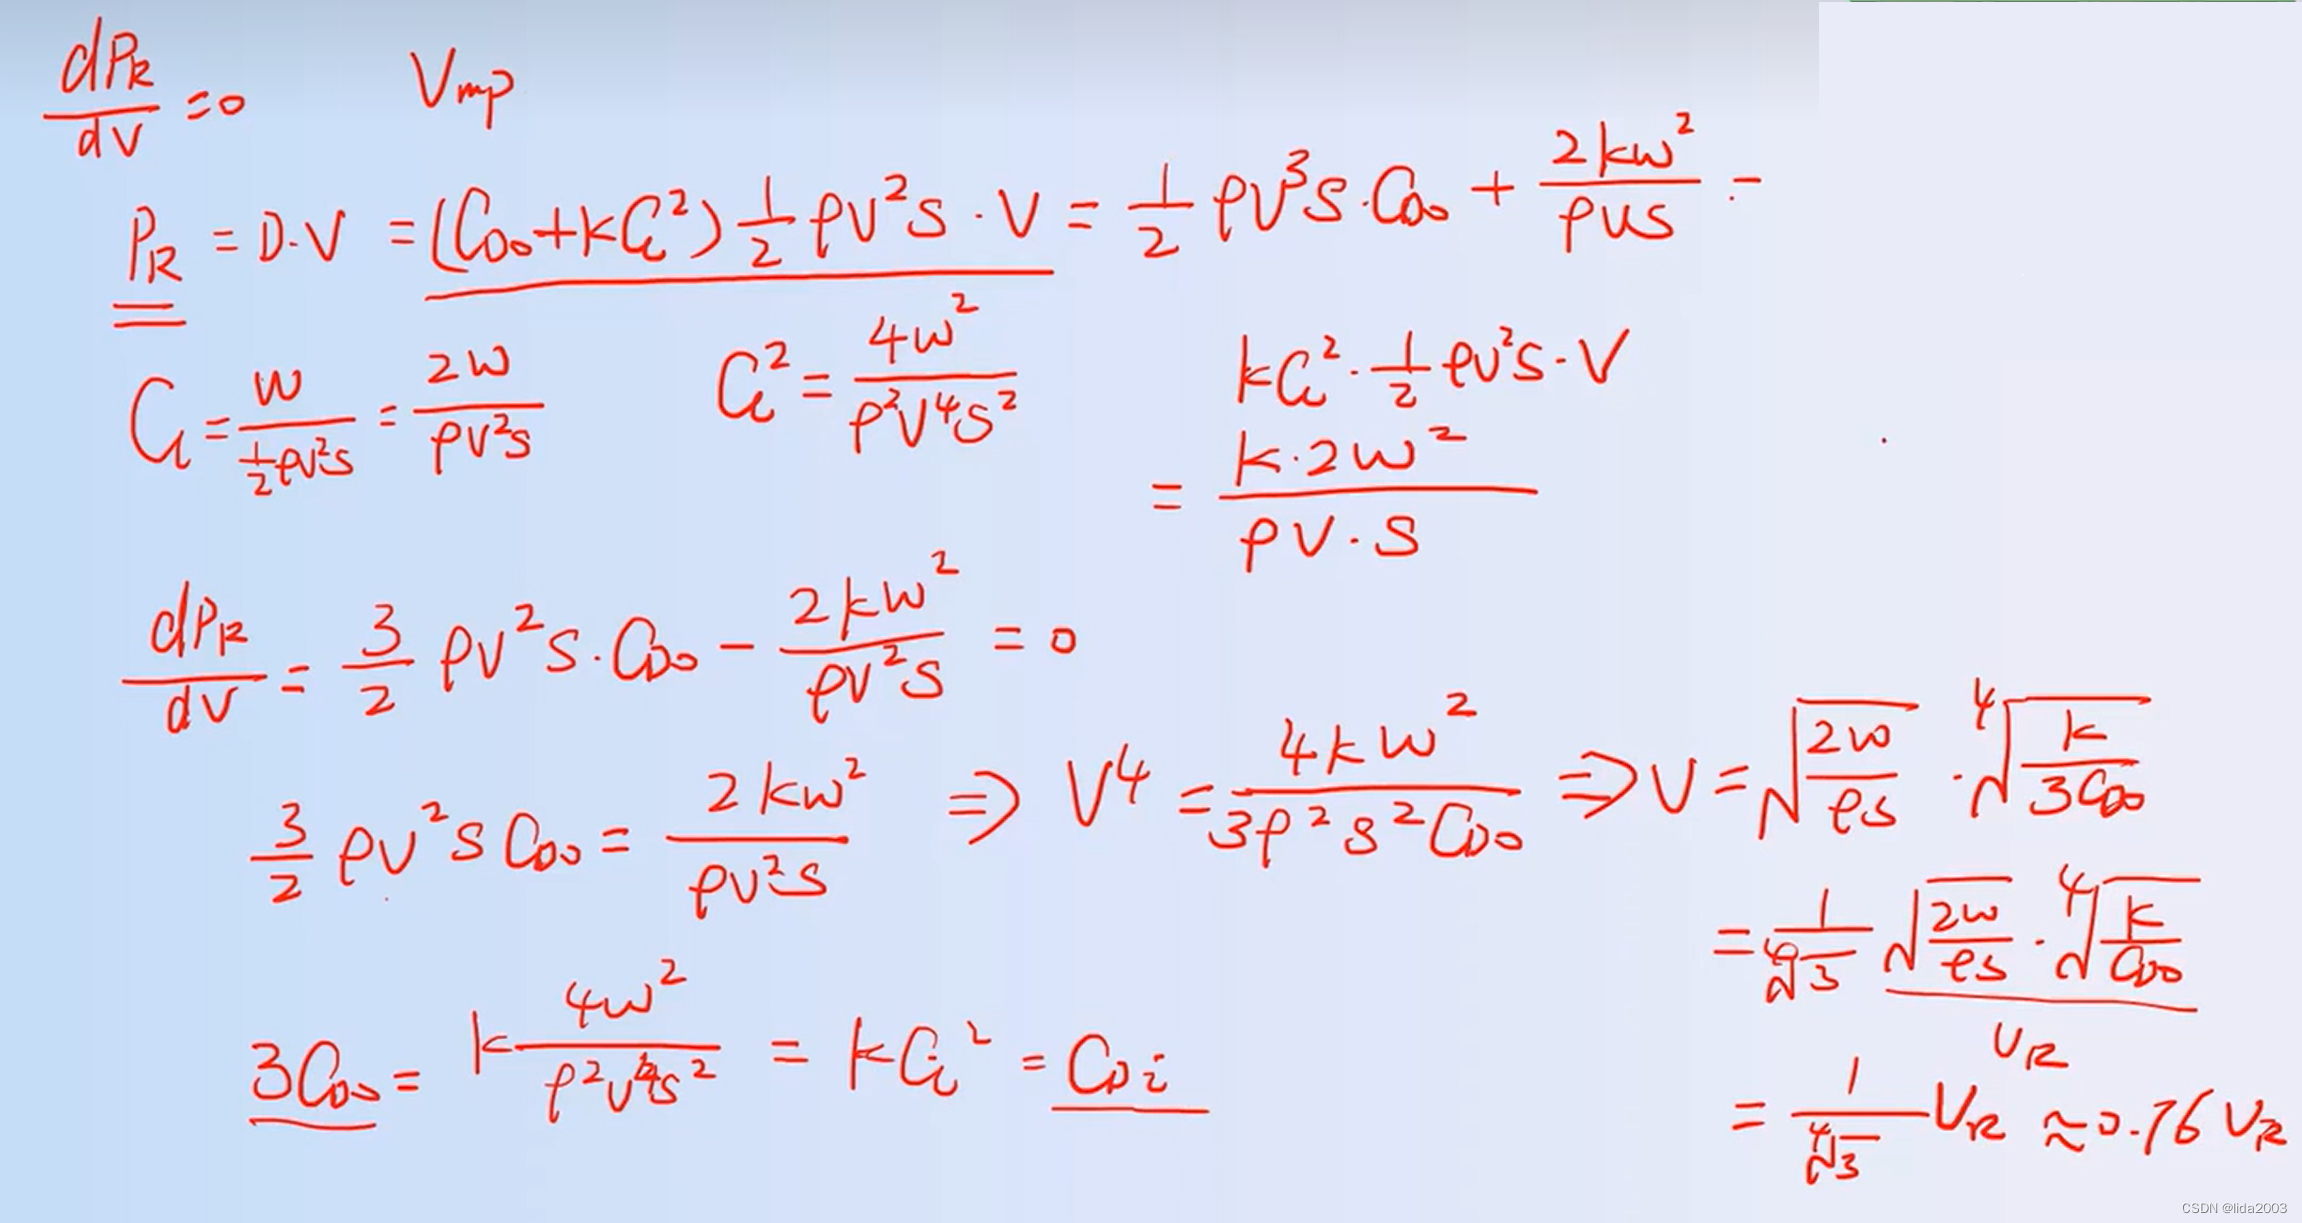 dP_R/dV = 0    V_mp
P_R = D·V = (C_D0 + kC_L²) 1/2 ρV²S·V = 1/2 ρV³S·C_D0 + 2kW²/ρVS =
C_L = W/(1/2 ρV²S) = 2W/ρV²S    C_L² = 4W²/ρ²V⁴S²    kC_L²·1/2 ρV²S·V
= k·2W²/ρV·S
dP_R/dV = 3/2 ρV²S·C_D0 − 2kW²/ρV²S = 0
3/2 ρV²S C_D0 = 2kW²/ρV²S ⇒ V⁴ = 4kW²/3ρ²S²C_D0 ⇒ V = √(2W/ρS) · ∜(k/3C_D0)
= 1/∜3 √(2W/ρS) · ∜(k/C_D0)
V_R
3C_D0 = k 4W²/ρ²V⁴S² = kC_L² = C_Di
= 1/∜3 V_R ≈ 0.76 V_R
CSDN @lida2003